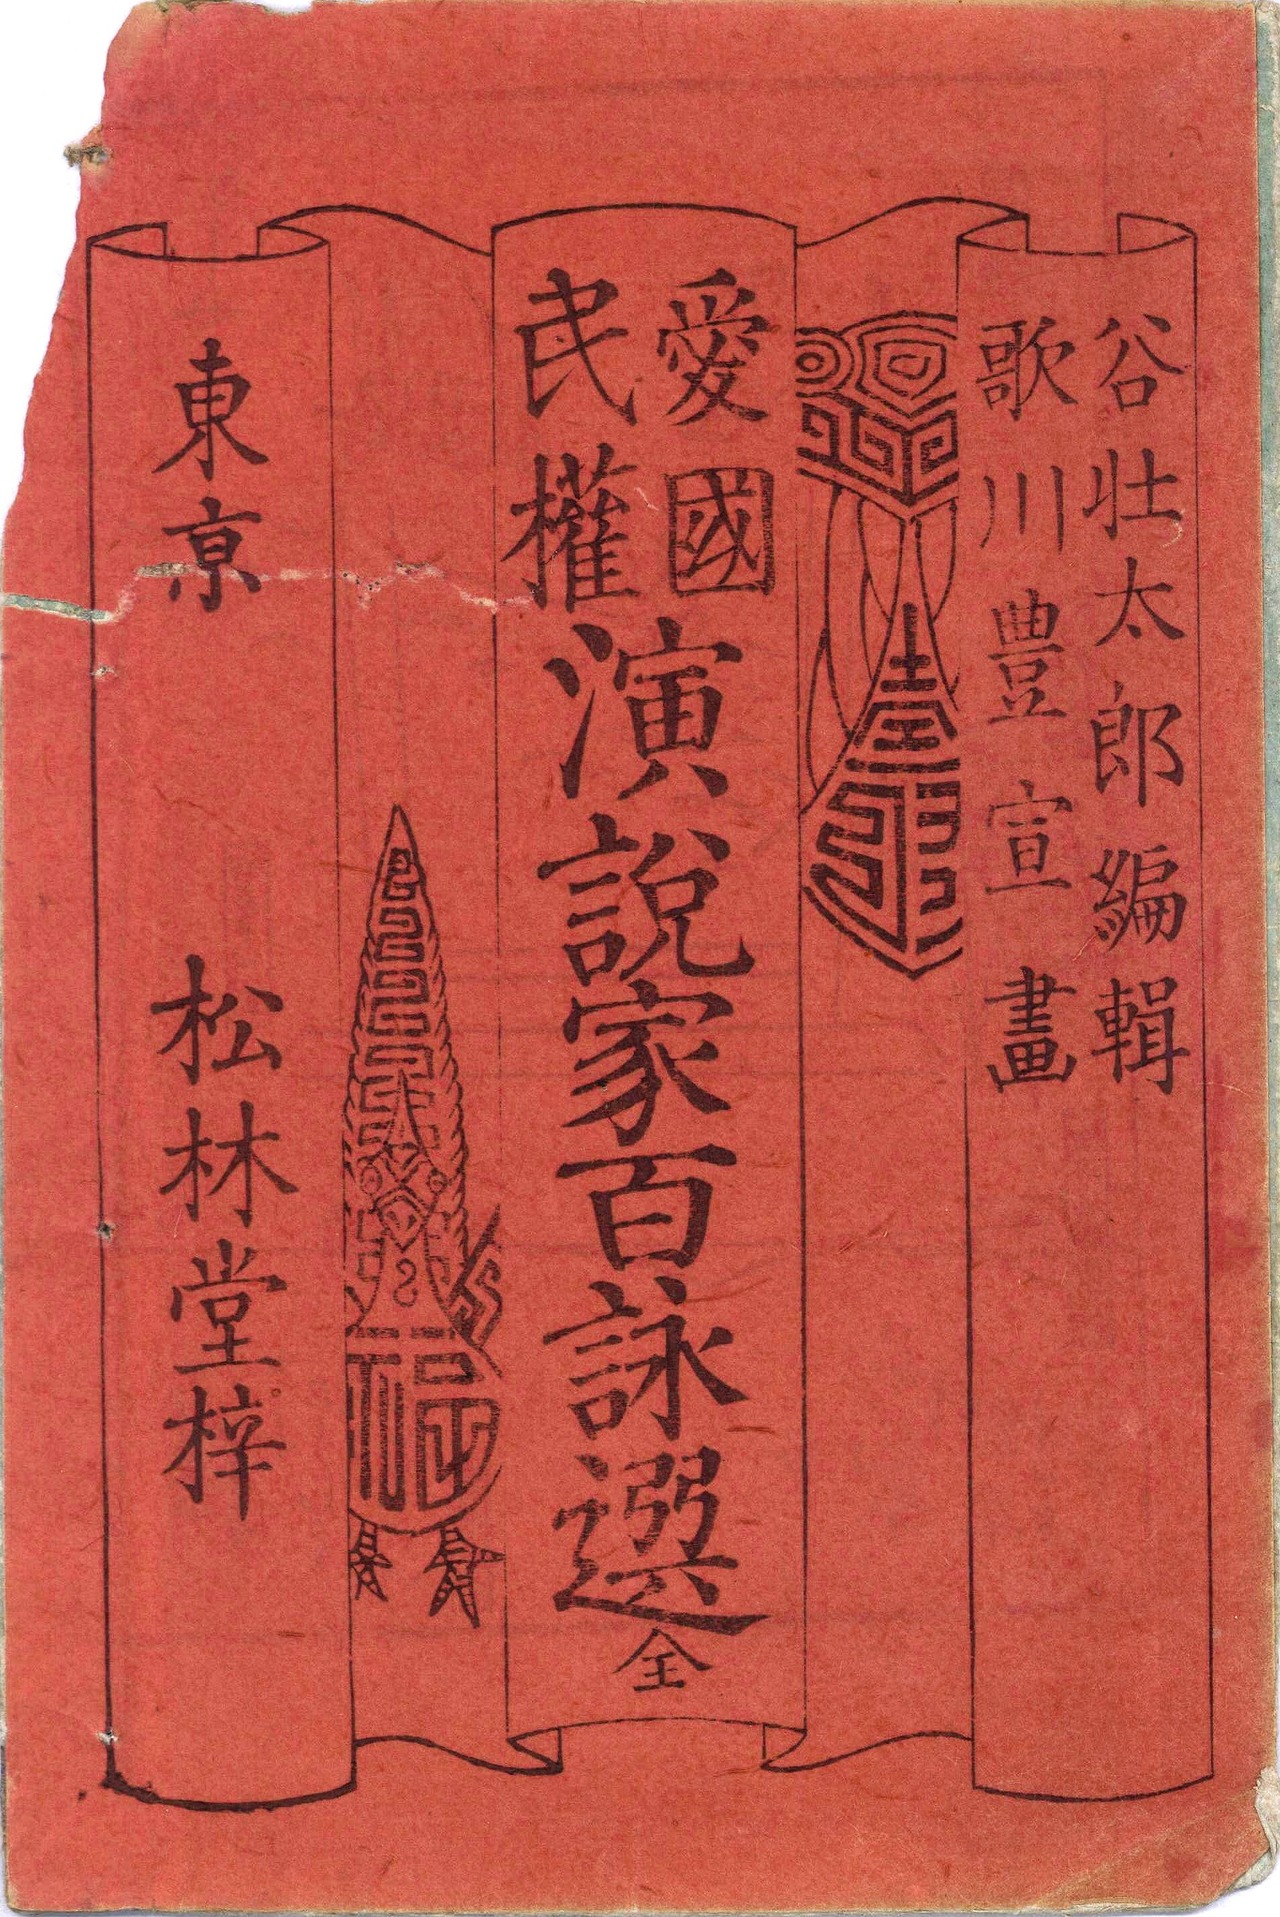 谷壮太郎編輯
歌川豊宣畫
愛國
民權
演說家百詠選 全
東京 松林堂梓
壽
福